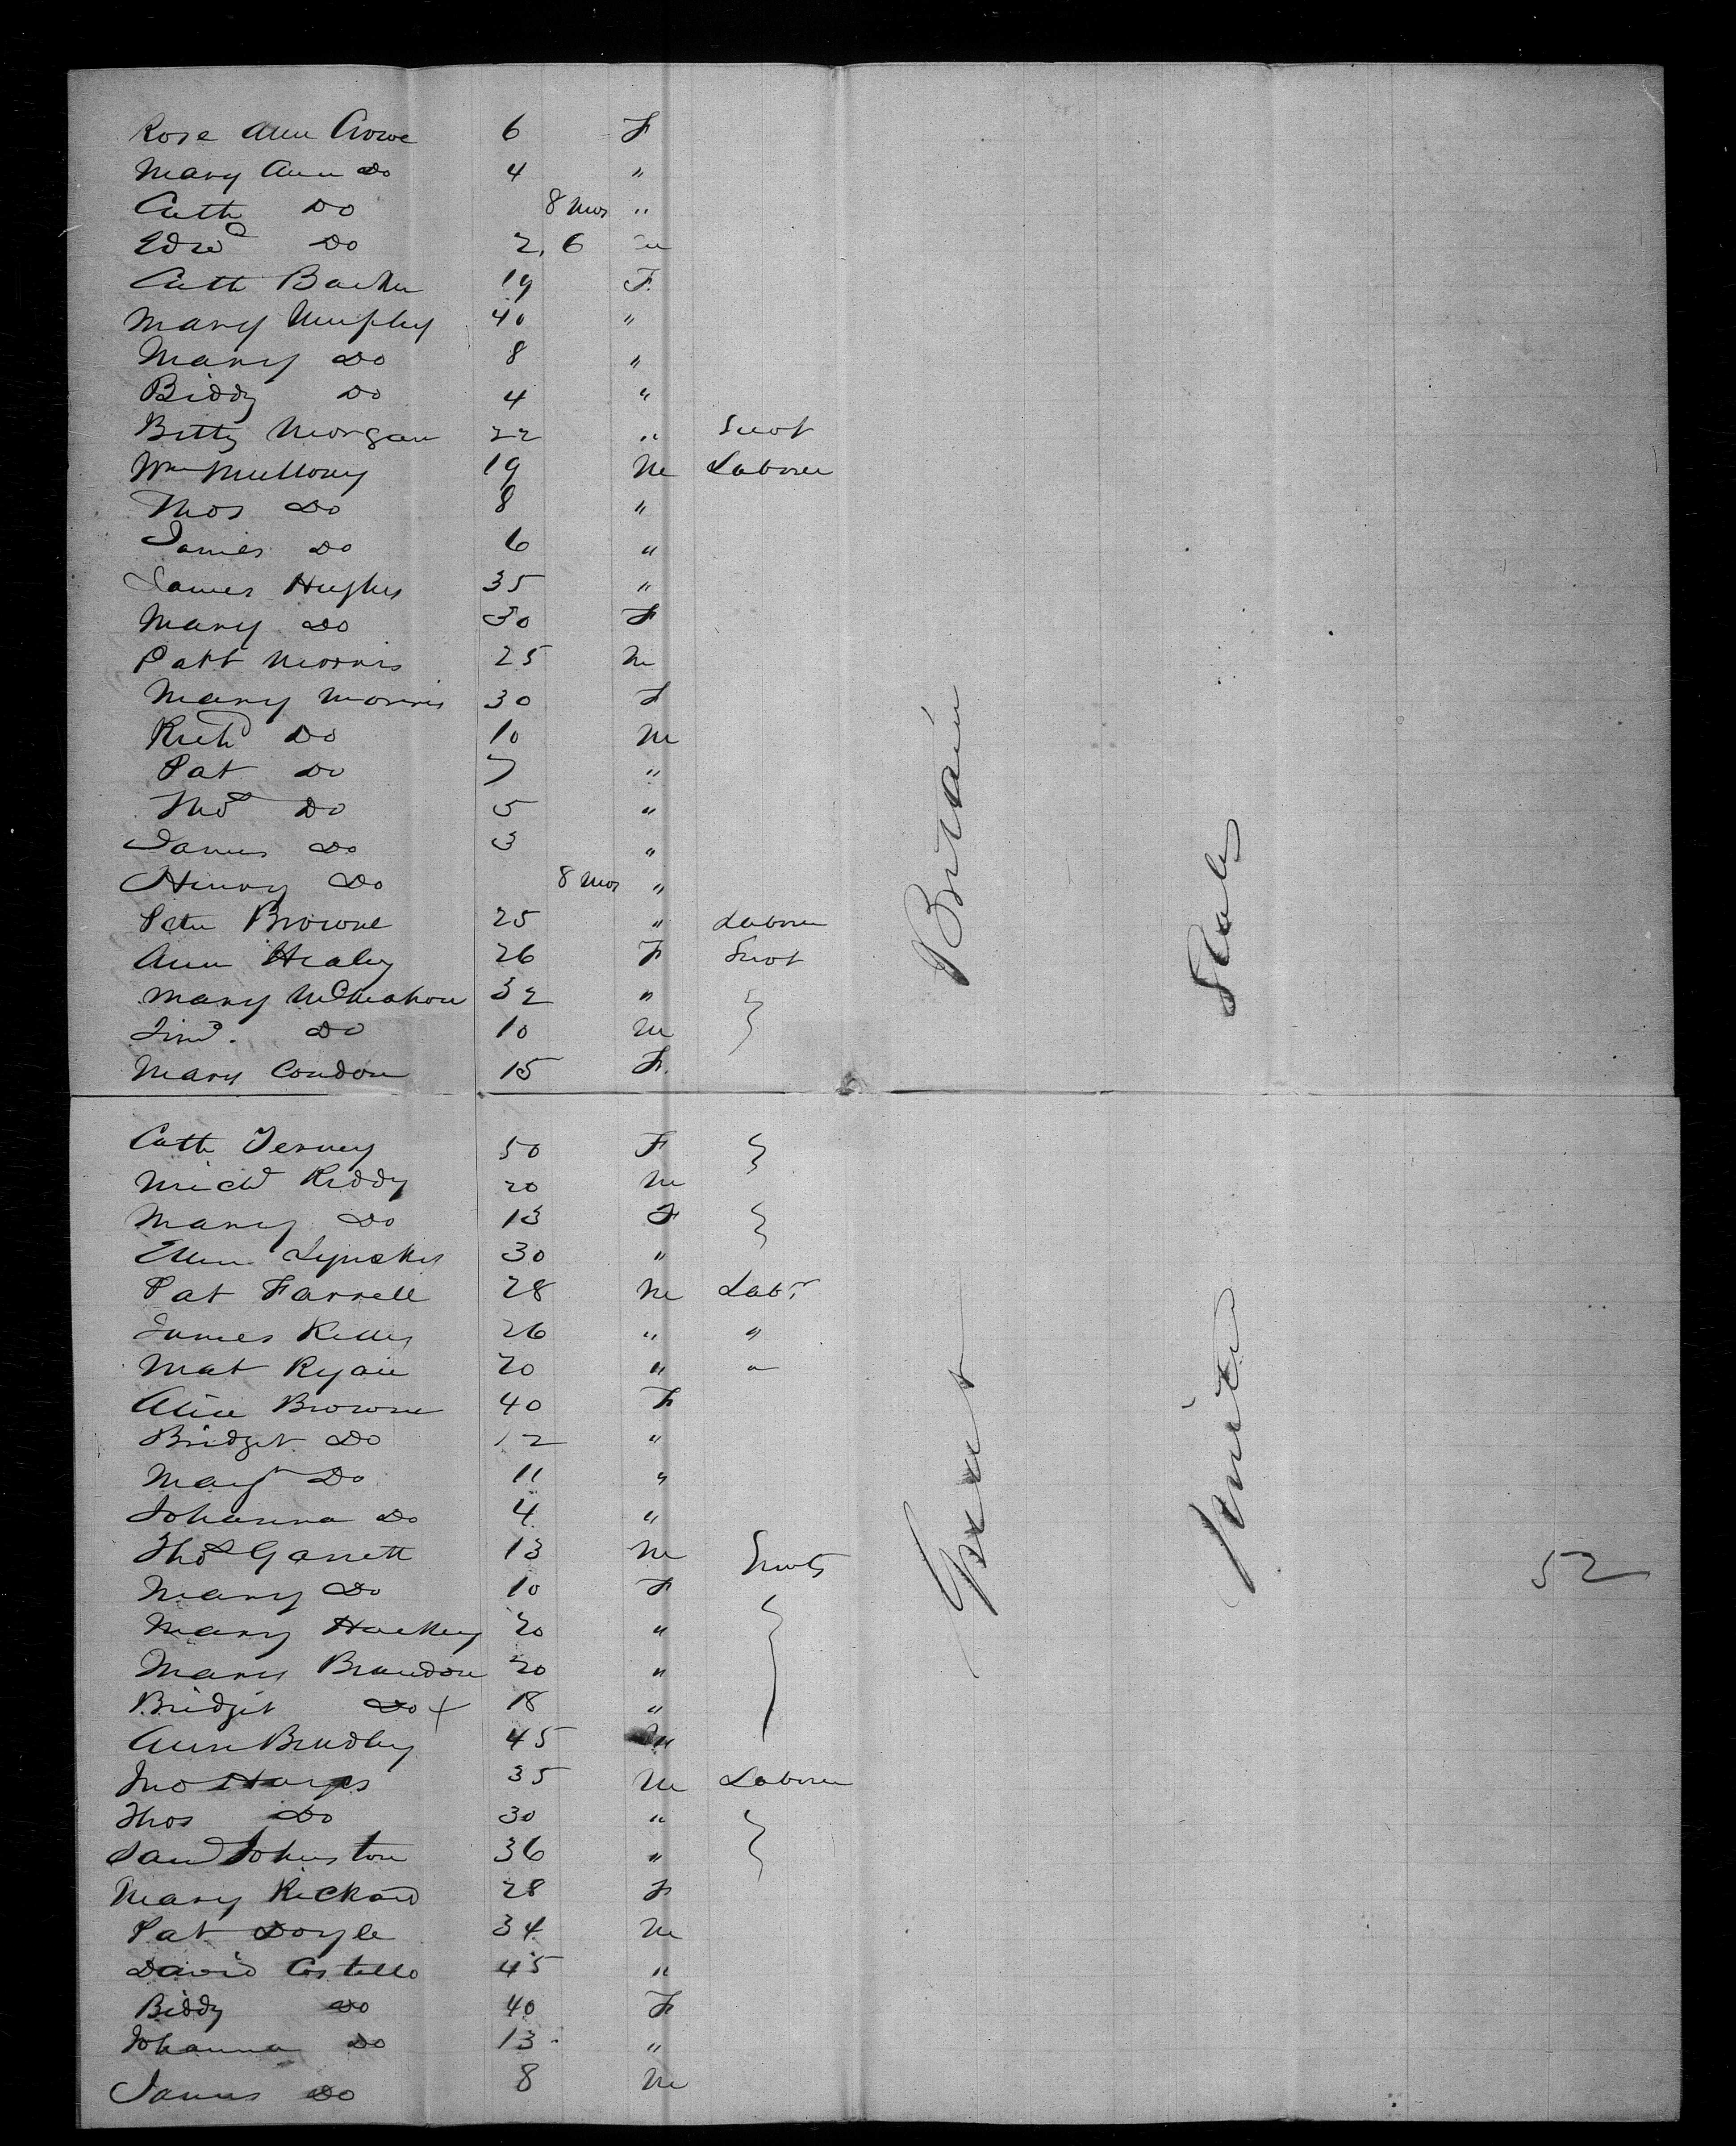 Rose Ann Crowe 6 F
Mary Ann Do 4 "
Cath Do 8 Mos "
Edwd Do 2, 6 M
Cath 19 F
Mary Murphy 40 "
Mary Do 8 "
Biddy Do 4 "
Betty Morgan 22 " Servt
Wm Mullony 19 M Laborer
Thos Do 8 "
James Do 6 "
James Hughes 35 "
Mary Do 30 F
Patt Morris 25 M
Mary Morris 30 F
Richd Do 10 M
Pat Do 7 "
Thos Do 5 "
James Do 3 "
Henry Do 8 Mos "
Peter Browne 25 " Laborer
Ann Healy 26 F Servt
Mary McMahon 32 "
Do 10 M
Mary Condon 15 F.
Cath 50 F
Michl Reddy 20 M
Mary Do 13 F
Ellen 30 "
Pat Farrell 28 M Labr
James Kelly 26 " "
Mat Ryan 20 " "
Alice Browne 40 F
Bridget Do 12 "
Mary Do 11 "
Johanna Do 4 "
Thos Garrett 13 M Servts
Mary Do 10 F
Mary 20 "
Mary Brandon 20 "
Bridget Do + 18 "
Ann Bradley 45 "
Jno Hayes 35 M Laborer
Thos Do 30 "
Saml Johnston 36 "
Mary Rickard 28 F
Pat Doyle 34 M
David Costello 45 "
Biddy Do 40 F
Johanna Do 13 "
James Do 8 M
Great Britain
United States
52